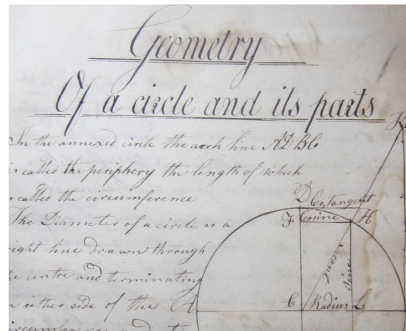 Geometry
Of a circle and its parts
In the annexed circle the arch line ADBC
is called the periphery the length of which
called the circumference
The Diameter of a circle is a
right line drawn through
centre and terminating
either side of the
D Co. Tangent
F Cosine H
K
Secant
Sine
C Radius L
A